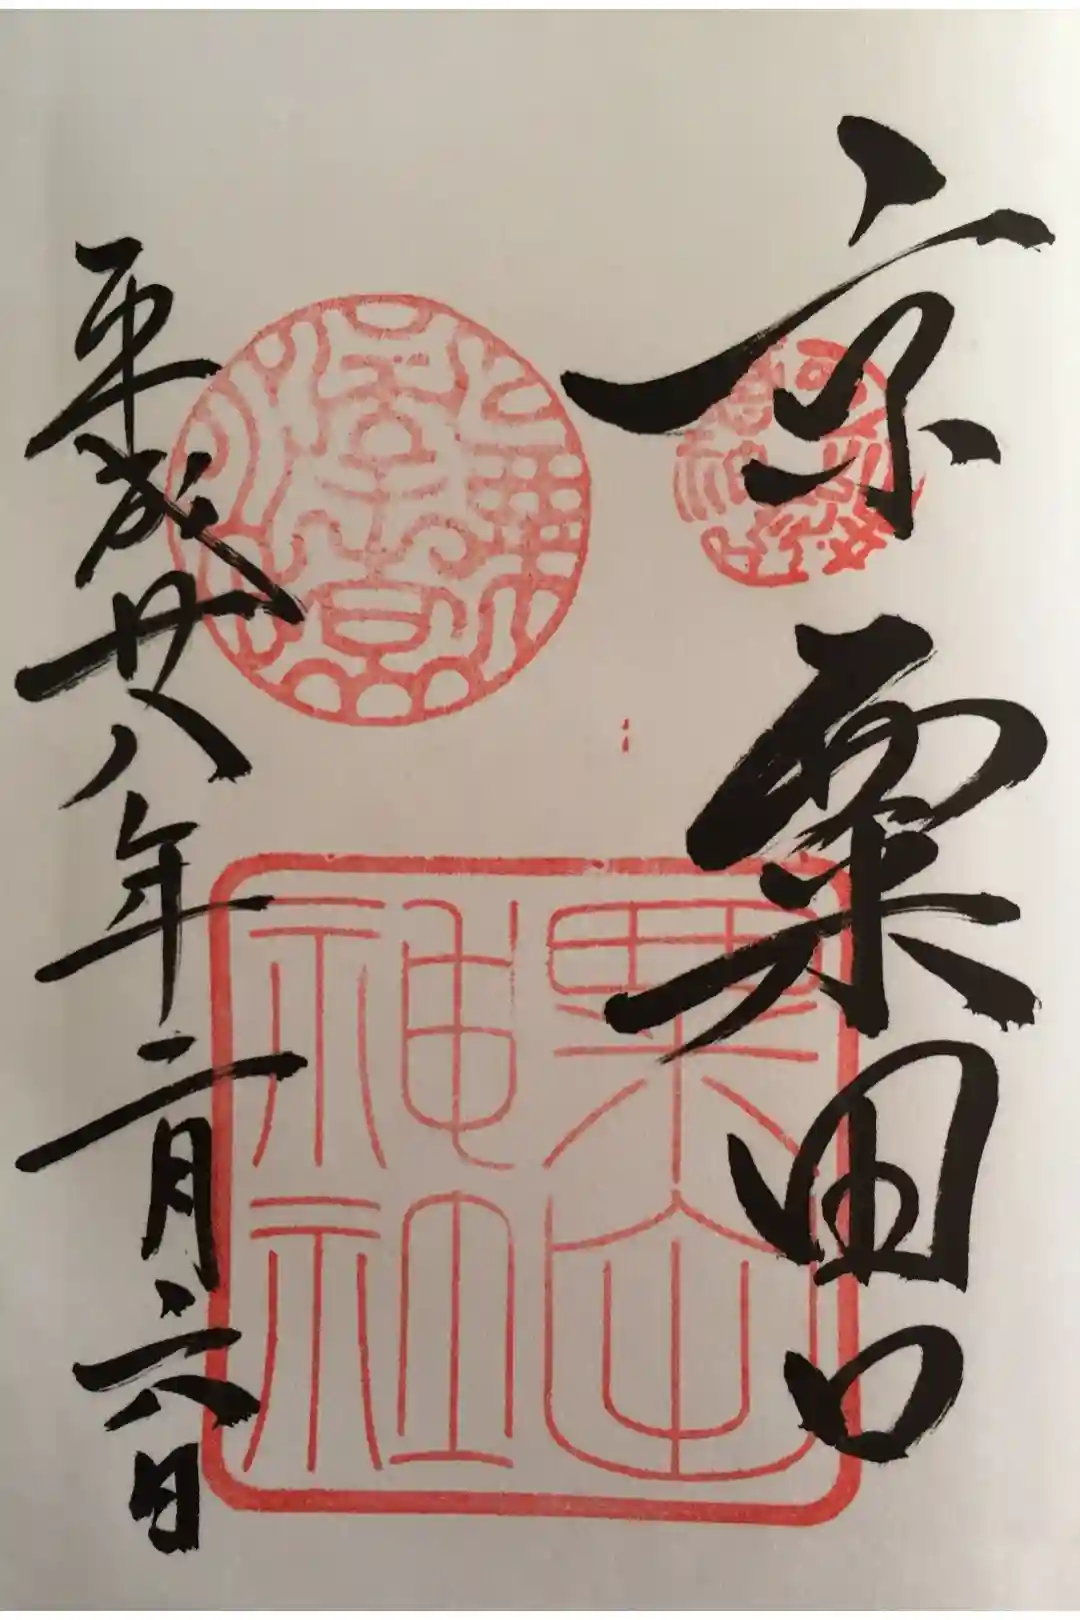 京 粟田口
粟田神社
平成廿八年二月六日